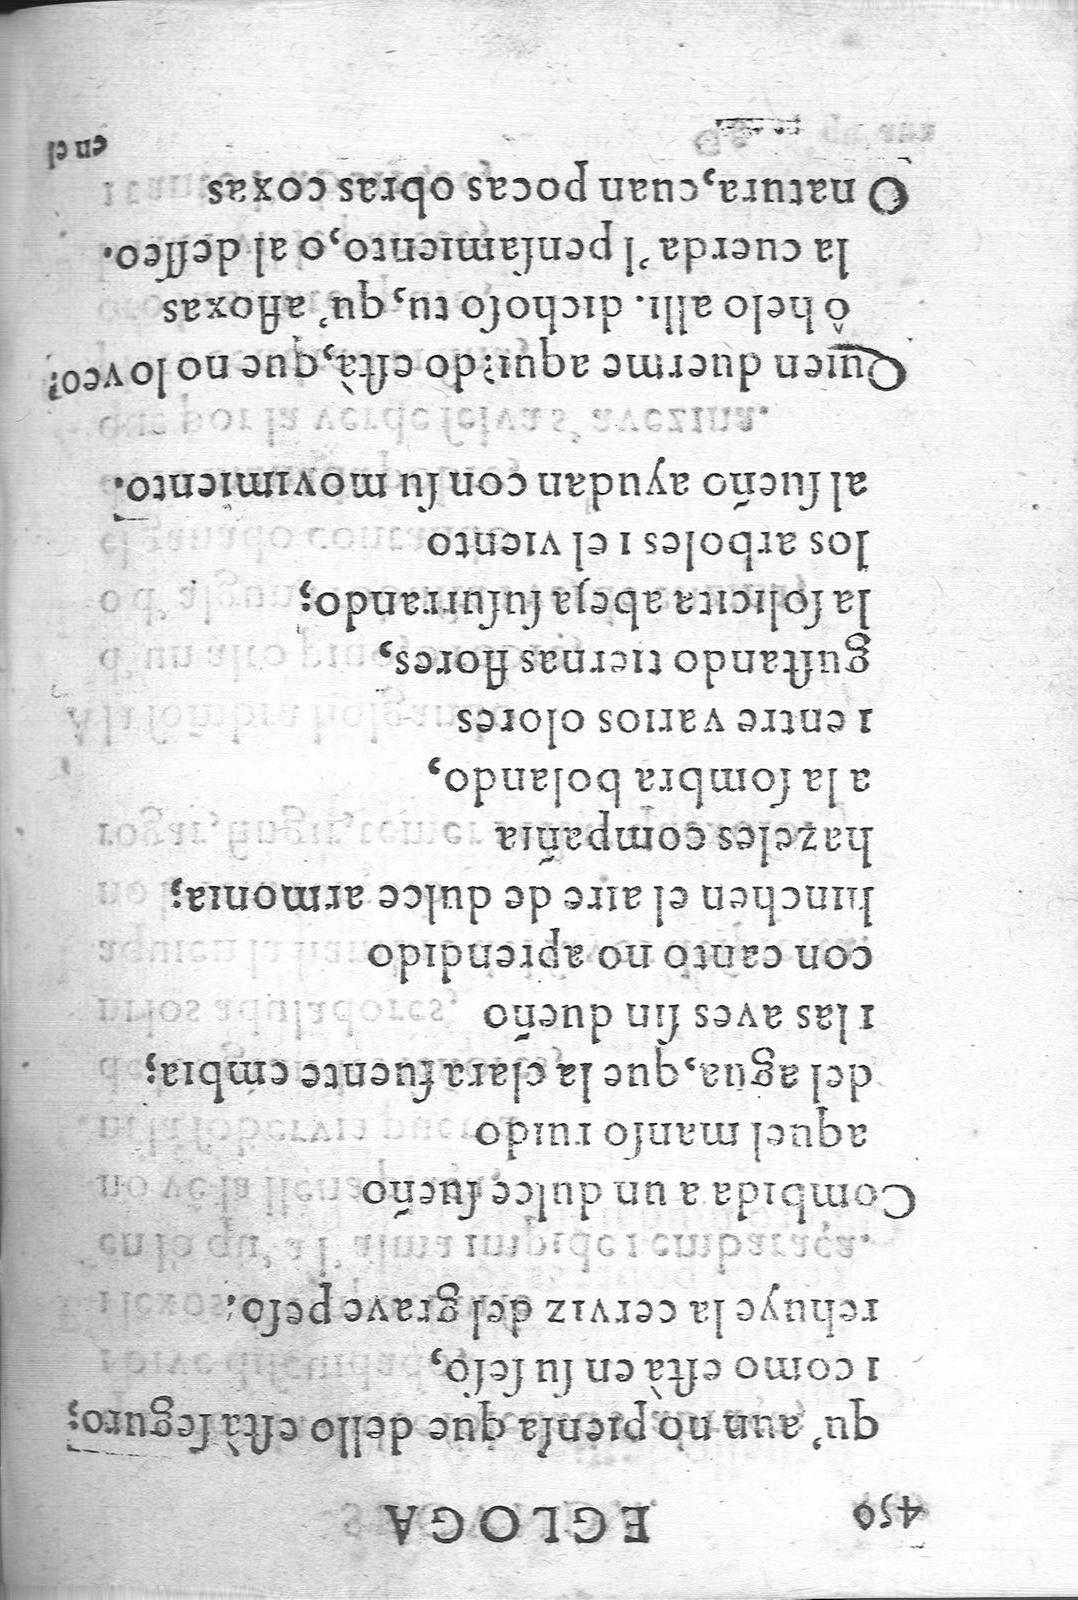 450 EGLOGA
qu’ aun no piensa que dello està seguro;
i como està en su seso,
rehuye la cerviz del grave peso.
Combida a un dulce sueño
aquel manso ruido
del agua, que la clara fuente embia;
i las aves sin dueño
con canto no aprendido
hinchen el aire de dulce armonia;
hazeles compañia
a la sombra bolando,
i entre varios olores
gustando tiernas flores,
la solicita abeja susurrando;
los arboles i el viento
al sueño ayudan con su movimiento.
Quien duerme aqui? do està, que no lo veo?
ô helo alli. dichoso tu, qu’ afloxas
la cuerda ’l pensamiento, o al desseo.
O natura, cuan pocas obras coxas
en el